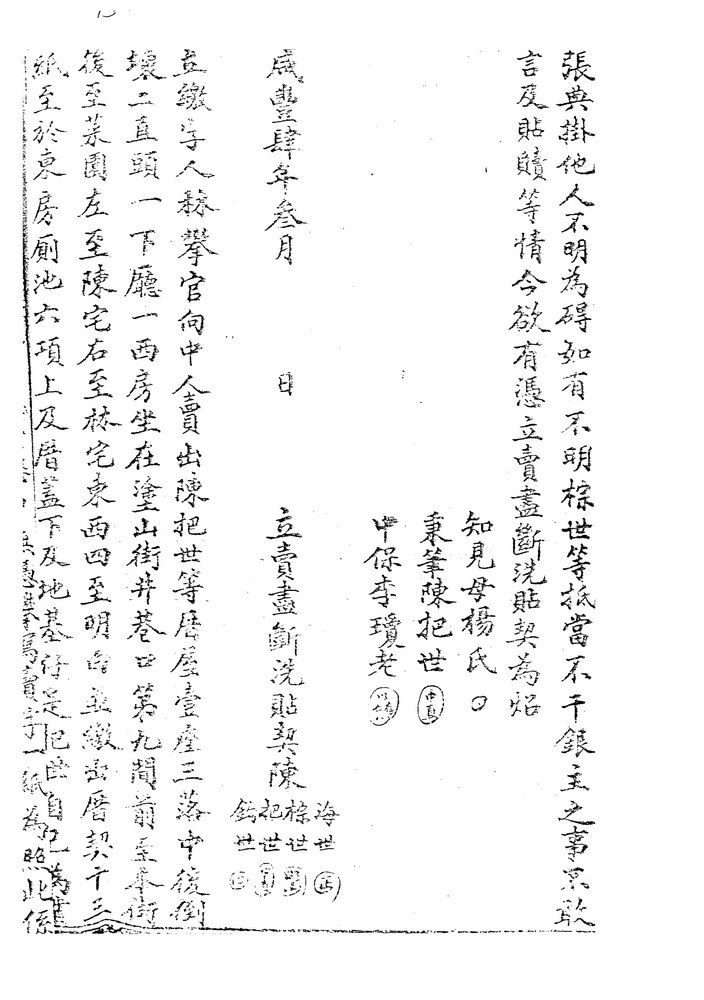 張典掛他人不明為碍如有不明棕世等抵當不干銀主之事不敢
言及貼贖等情今欲有憑立賣盡斷洗貼契為炤
知見母楊氏
秉筆陳把世
中保李瓊老
咸豐肆年叁月 日 立賣盡斷洗貼契陳
海世
棕世
把世
世
立繳字人林攀官向中人賣出陳把世等厝屋壹座三落中後倒
壞二直頭一下廳一西房坐在塗山街井巷口第九間前至本街
後至菜園左至陳宅右至林宅東西四至明白並繳出厝契十三
紙至於東房廁池六項上及厝蓋下及地基仔是把世自己
無憑攀寫賣字一紙為照此係